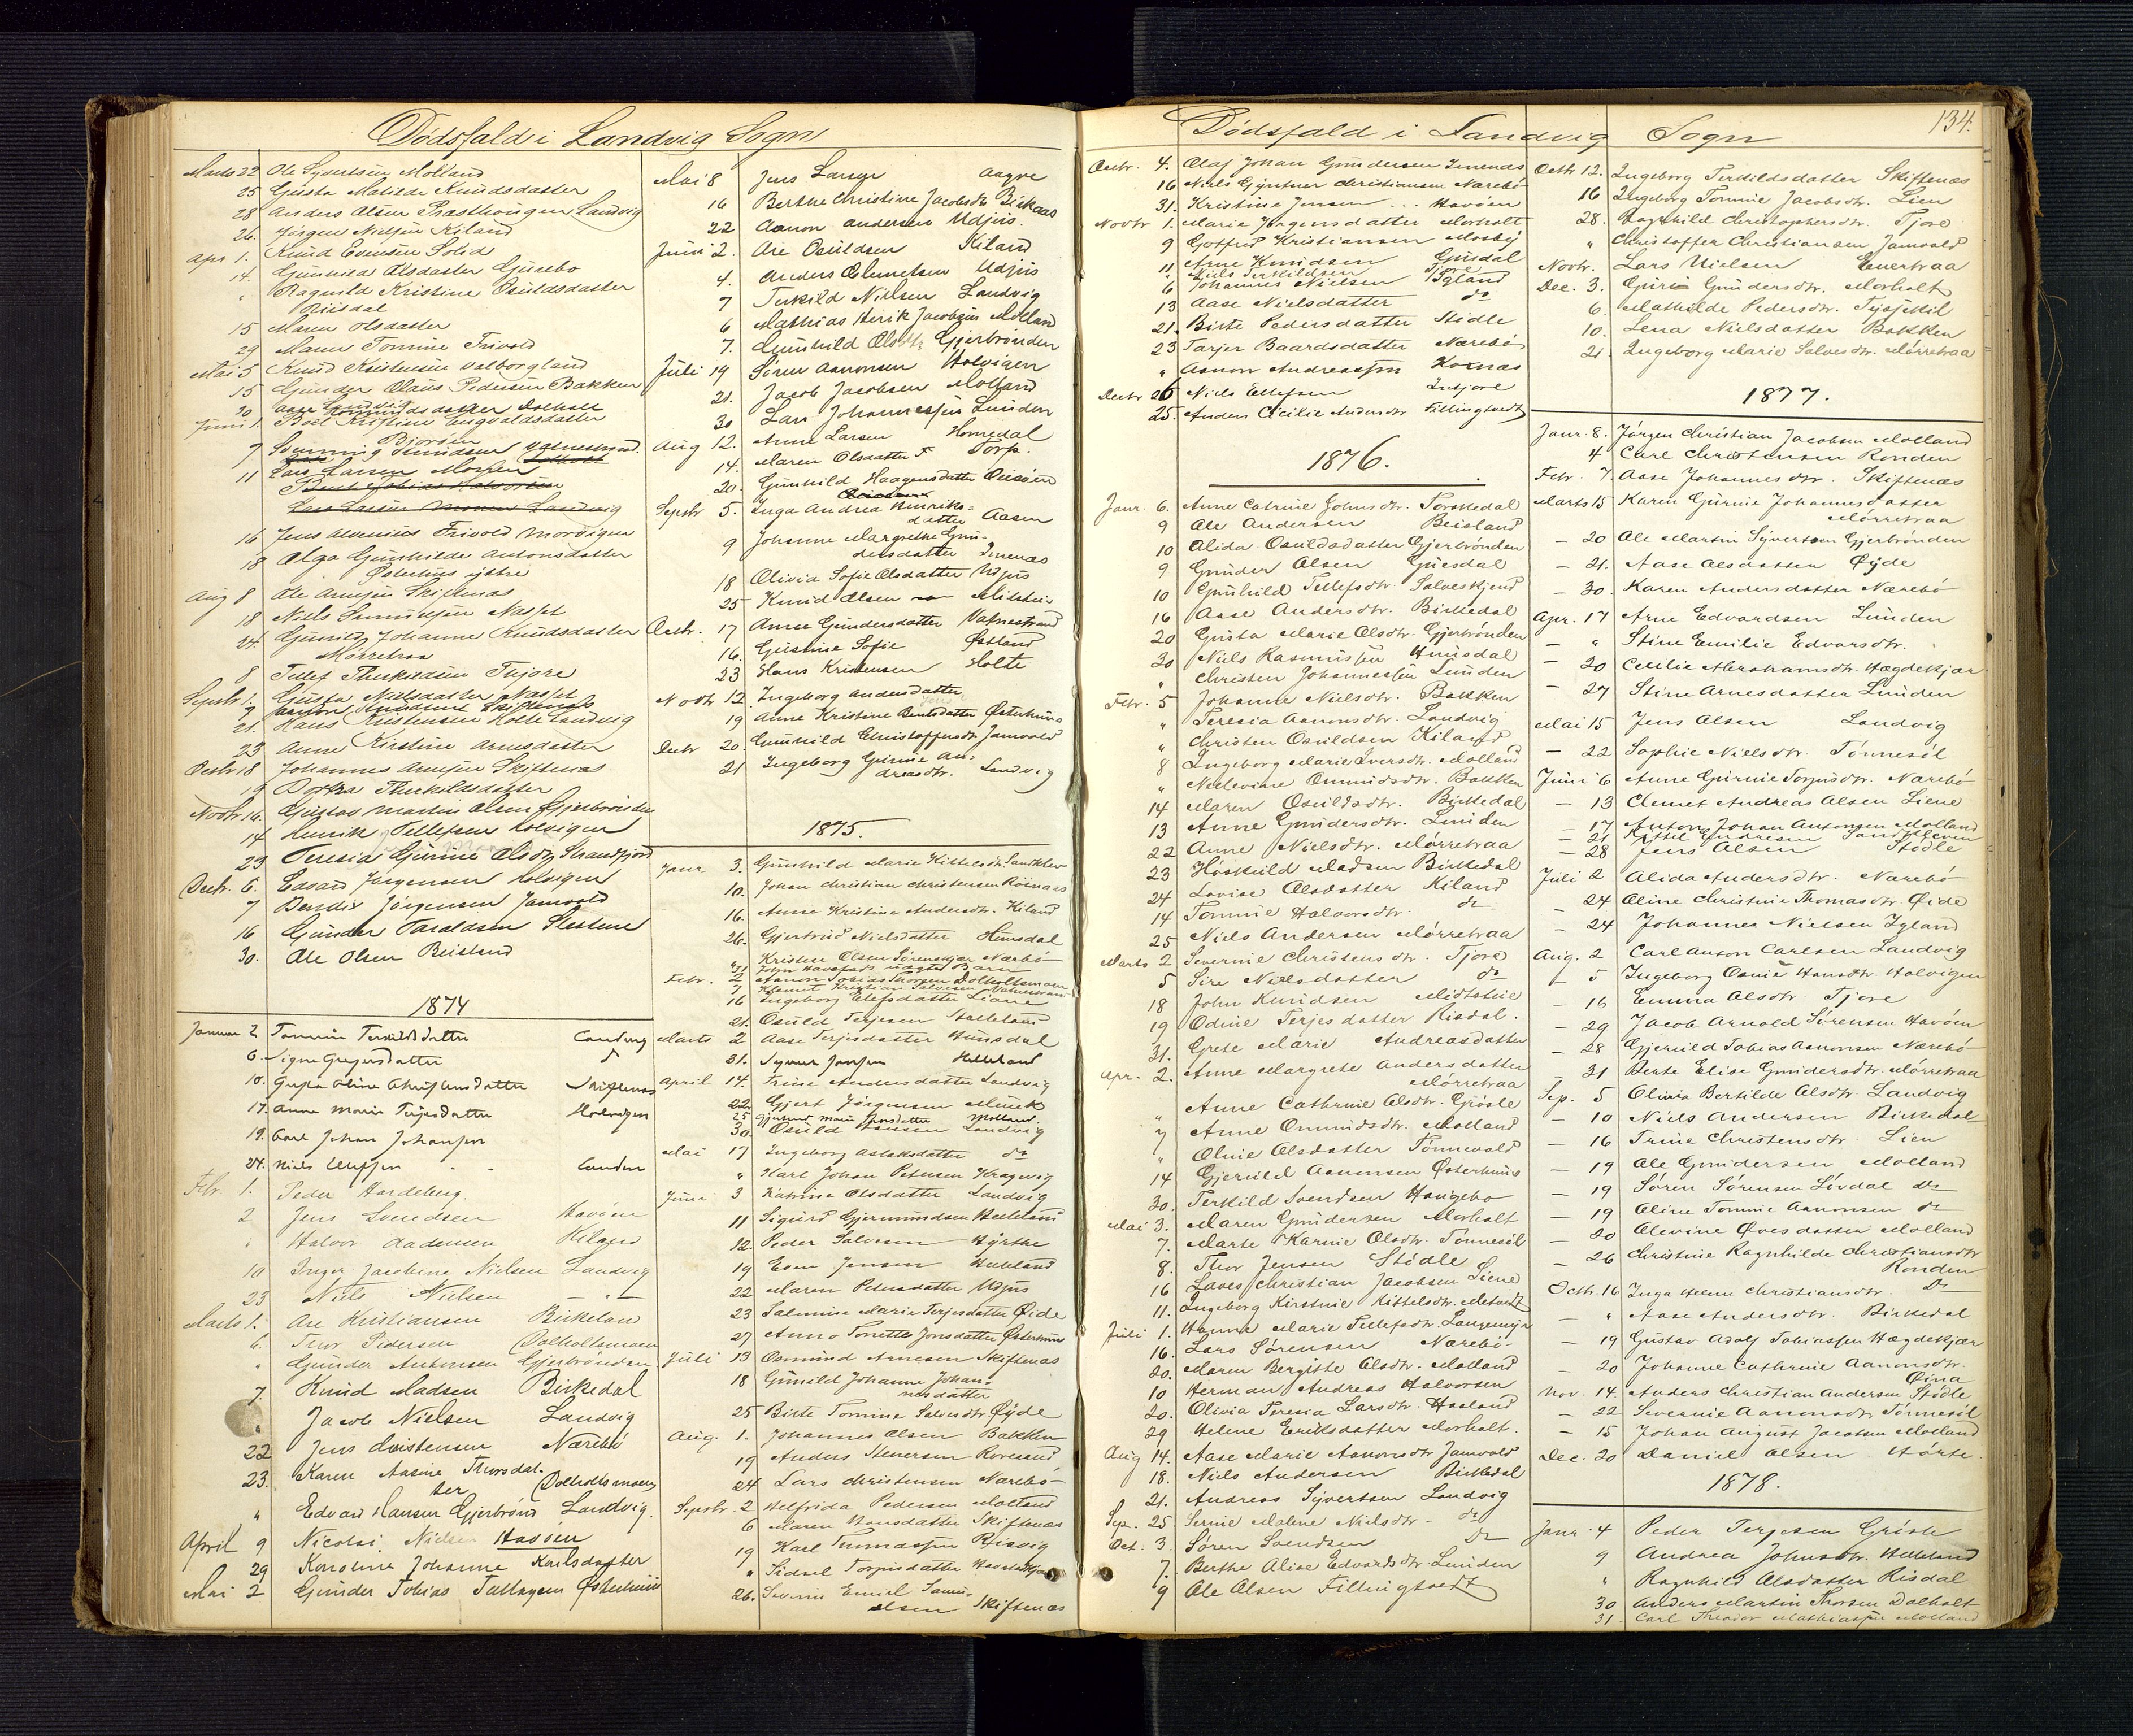 Dödsfald i Landvig Sogn
Marts 22 Ole Syvertsen Molland
25 Gusta Matilde Knudsdatter
28 Anders Olsen Landvig
26. Jörgen Nielsen Kiland
Apr 1. Knud Evensen
14. Gunhild Olsdatter
" Ragnild Kristine Osuldsdatter
Riisdal
15 Maren Olsdatter
29 Maren Tomine Frivold
Mai 5 Knud Kristensen Valborgland
15 Gunder Olaus Pedersen Bakken
30 Aase
Juni 1. Boel Kristine
7
11 Lars Larsen
Lars Larsen Landvig
16 Jens Frivold
18 Olga Gunhilde Antonsdatter
Østerhus ystre
Aug 8 Ole Arnesen Skiftenæs
18 Niels
24. Gunild Johanne Knudsdatter
Mørretraa
8 Tellef Therkildsen Tjore
Septr 1. Gusta Nielsdatter
7
21. Hans Kristensen Holte Landvig
23 Anne Kirstine Arnesdatter
Octbr 18 Johannes Arnesen Skiftenæs
19 Therkildsdatter
Novbr 16. Gustav Martin Olsen Gjerbrönden
14 Henrik Tellefsen Holvigen
29 Teresia Gurine Olsdtr Strandfjord
Decbr. 6. Edvard Jörgensen Holvigen
7 Bendix Jörgensen Jamvold
16 Gunder Taraldsen
30. Ole Olsen Beisland
1874
Januar 2 Tomine Terkildsdatter Landvig
6. Signe Gregersdatter
10. Olina Skiftenæs
17. Anne Marie Terjesdatter Holvigen
19. Carl Johan Johansen
24. Niels Landvig
Febr. 1. Peder Hardeberg.
2 Jens Svendsen Havöen
" Halvor Aadensen Kiland
10 Inger Jacobine Nielsen Landvig
23 Niels Nielsen — " —
Marts 1. Are Kristiansen Birkeland
6. Thor Pedersen Dolholtsmoen
" Gunder Antonsen Gjerbrönden
7. Knud Madsen Birkedal
" Jacob Nielsen Landvig
22 Jens Kristensen Nærebö
23. Karen Aasine Thorsdat-
ter Dolholtsmoen
" Edvard Hansen Gjerbrönd Landvig.
April 9 Nicolai Nielsen Havöen
29 Karoline Johanne Karlsdatter
Mai 2 Gunder Tobias Østerhuus
Mai 8 Jens Larsen Aagre
16 Berthe Christine Jacobsdtr Birkaas
22 Aanon Andersen Udjus.
Juni 2. Are Osuldsen Kiland
4. Anders Clemetsen Udjus
7 Terkild Nielsen Landvig
6 Mathias Henrik Jacobsen Molland
7. Gunhild Olsdtr Gjerbrönden
Juli 19 Sören Aanonsen Holvigen
21. Jacob Jacobsen Molland
30 Lars Johannessen Lunden
Aug 12. Anne Larsen Homedal
14. Maren Olsdatter F Torp.
20. Gunhild Haagensdatter
Septbr 5. Inga Andrea Henriks-
datter Aasen
9 Johanne Margrethe Gun-
dersdatter Imenæs
18 Olivia Sofie Olsdatter Udjus
25 Knud Olsen
Octbr. 17 Anne Gundersdatter Vatnestrand
16. Gustine Sofie Østland
23 Hans Kristensen Holte
Novbr 12 Ingeborg Andersdatter
19 Anne Kristine Berntsdatter Østerhuus
Decbr 20. Gunhild Christoffersdtr Jamvold
21 Ingeborg Gurine An-
dreasdtr. Landvig
1875.
Janr 3. Gunhild Marie Kittelsdtr. Sandkleve
10. Johan Christian Christensen
16. Anne Kristine Andersdtr. Kiland
26. Gjertrud Nielsdatter Hunsdal
" Kristen Olsen Nærebö
Barn
Febr. 2 Aanon Tobias Thorsen Dolholtsmoen
7 Klemet Kristian Salvesen Vatnestrand
16 Ingeborg Elefsdatter Liane
21. Osuld Terjesen Halleland
Marts 2 Aase Terjesdatter Hunsdal
31. Syvert Jensen Helleland
April 14. Trine Andersdatter Landvig
22. Gjert Jörgensen Munk
25 Gjertrud Marie Molland
30. Osuld Hansen Landvig
Mai 17 Ingeborg Aslaksdatter do
" Karl Johan Petersen Kragevig
Juni 3 Katrine Olsdatter Landvig
11 Sigurd Gjermundsen Helleland
12. Peder Salvesen Hyrthe
19 Even Jensen Helleland
22 Maren Petersdatter Udjus
23 Salmine Marie Terjesdatter Øide
27 Anne Tonette Jonsdatter Østerhus
Juli 13 Osmund Arnesen Skiftenæs
18 Gunild Johanne Johan-
nesdatter
25 Birte Tomine Salvesdtr Øyde
Aug. 1. Johannes Olsen Bakken
19 Anders Stenersen Roresand
24 Lars Christensen Nærebö
Septbr. 2 Helfrida Pedersen Molland
6 Maren Hansdatter Skiftenæs
19 Karl Tommasen Risvig
" Sidsel Torjusdatter
26. Severin Emiel Samu-
elsen Skiftenæs
Dödsfald i Landvig Sogn
134.
Octbr. 4. Olaf Johan Gundersen Imenæs
16 Niels Gyntner Christiansen Nærebö
31. Kristine Jensen ... Havöen
Novbr 1. Marie Jörgensdatter Morholt
9 Gotfred Kristiansen Mosby
11. Arne Knudsen Guusdal
" Niels Terkildsen Tjore
6 Johannes Nielsen Igland
13 Aase Nielsdatter do
21. Birte Pedersdatter Stidle
23 Tarjer Baardsdatter Nærebö
" Aanon Andreassen Kornæs
Decbr 26 Niels Ellefsen Indjore
25. Anders Cicilie Andersdtr Fillingtvedt
1876.
Janr. 6. Anne Catrine Johnsdtr. Torskedal
9 Ole Andersen Beisland
10 Alida Osuldsdatter Gjerbrönden
9 Gunder Olsen Guusdal
10 Gunhild Tellefsdtr. Salveskjend
16 Aase Andersdtr. Birkedal
20 Gusta Marie Olsdtr. Gjerbrönden
30 Niels Rasmussen Hunsdal
" Christen Johannessen Lunden
Febr. 5 Johanne Nielsdtr. Bakken
" Teresia Aanonsdtr. Landvig
" Christen Osuldsen Kiland
8 Ingeborg Marie Iversdtr. Molland
" Nielevine Ommundsdtr. Bakken
14 Maren Osuldsdtr. Birkedal
13 Anne Gundersdtr. Lunden
22 Anne Nielsdtr. Mörretraa
23 Höskuld Madsen Birkedal
24 Lovise Olsdatter Kiland
14 Tomine Halvorsdtr. do
25 Niels Andersen Mörretraa
Marts 2 Severine Christensdtr. Tjore
5 Sire Nielsdatter do
18 John Knudsen Midtstue
19 Odine Terjesdatter Risdal.
31. Grete Marie Andreasdatter
Apr. 2. Anne Margrete Andersdatter
Mörretraa
" Anne Cathrine Olsdtr. Grösle
7 Anne Ommundsdtr. Molland
" Oline Olsdatter Tönnevold
14 Gjeruld Aanonsen Østerhuus
30. Terkild Svendsen Haugebo
Mai 3. Maren Gundersen Morholt
7. Marte Karine Olsdtr. Tönnesöl
8. Thor Jensen Stidle
16 Laves Christian Jacobsen Liene
11. Ingeborg Kirstine Kittelsdtr.
Juli 1. Hanna Marie Tellefsdtr. Langemyr
16. Lars Sörensen Nærebö
20. Maren Bergitte Olsdtr. Molland
10 Herman Andreas Halvorsen
20. Olivia Teresia Larsdtr. Haaland
29 Helene Eriksdatter Morholt.
Aug 14. Aase Marie Aanonsdtr Jamvold
18. Niels Andersen Birkedal
21. Andreas Syvertsen Landvig
Sep. 25 Serine Malene Nielsdtr. do
Oct. 3. Sören Svendsen do
7. Berthe Alise Edvardsdtr. Lunden
9 Ole Olsen Fillingtvedt
Octbr 12. Ingeborg Terkildsdatter Skiftenæs
16 Ingeborg Tomine Jacobsdtr. Lien
28. Ragnhild Christophersdtr. Tjore
" Christoffer Christiansen Jamvold
Novbr. Lars Nielsen
Dec. 3. Guri Gundersdtr. Morholt
6. Mathilde Pedersdtr.
10. Lena Nielsdatter Bakken
21. Ingeborg Marie Salvesdtr. Mörretraa
1877.
Janr. 8. Jörgen Christian Jacobsen Molland
4 Carl Christensen Ronden
Febr. 7. Aase Johannesdtr. Skiftenæs
Marts 15 Karen Gurine Johannesdatter
Mörretraa
— 20 Ole Martin Syvertsen Gjerbrönden
— 21. Aase Olsdatter Øyde
— 30. Karen Andersdatter Nærebö
Apr. 17 Arne Edvardsen Lunden
— " Stine Emilie Edvarsdtr.
— 20 Cecilie Abrahamsdtr. Hægdekjær
— 27 Stine Arnesdatter Lunden
Mai 15 Jens Olsen Landvig
— 22 Sophie Nielsdtr. Tönnesöl
Juni 6 Anne Gurine Torjusdtr. Nærebö
— 13 Clemet Andreas Olsen Liene
— 17 Anton Johan Antonsen Molland
— 21 Kittel Gundersen Sandkleven
— 28 Jens Olsen Stidle
Juli 2 Alida Andersdtr. Nærebö
— 24 Oline Christine Thomasdtr. Øide
— 24 Johannes Nielsen Igland
Aug. 2 Carl Anton Carlsen Landvig
— 5 Ingeborg Osine Hansdtr. Holvigen
— 16 Emma Olsdtr Tjore
— 29 Jacob Arnold Sörensen Havöen
— 28 Gjeruld Tobias Aanonsen Nærebö
— 31 Berte Elise Gundersdtr. Mörretraa
Sep. 5 Olivia Bertilde Olsdtr. Landvig
— 10 Niels Andersen Birkedal
— 16 Trine Christensdtr Lien
— 19 Ole Gundersen Molland
— 19 Sören Sörensen Lövdal do
— 19 Oline Tomine Aanonsen do
— 20 Olevine Øvesdatter Molland
— 26 Christine Ragnhilde Christiansdtr
Ronden
Octbr. 16 Inga Helene Christiansdtr. Do
— " Aase Andersdtr. Birkedal
— 19 Gustav Adolf Tobiassen Hægdekjær
— 20 Johanne Cathrine Aanonsdtr.
Nov. 14. Anders Christian Andersen Stidle
— 22 Severine Aanonsdtr Tönnesöl
— 15 Johan August Jacobsen Molland
Dec. 20 Daniel Olsen Hörte
1878.
Janr. 4 Peder Terjesen Grösle
9 Andrea Johnsdtr. Helleland
" Ragnhild Olsdatter Risdal
30 Anders Martin Thorsen Dolholt
31. Carl Theodor Mathiassen Molland